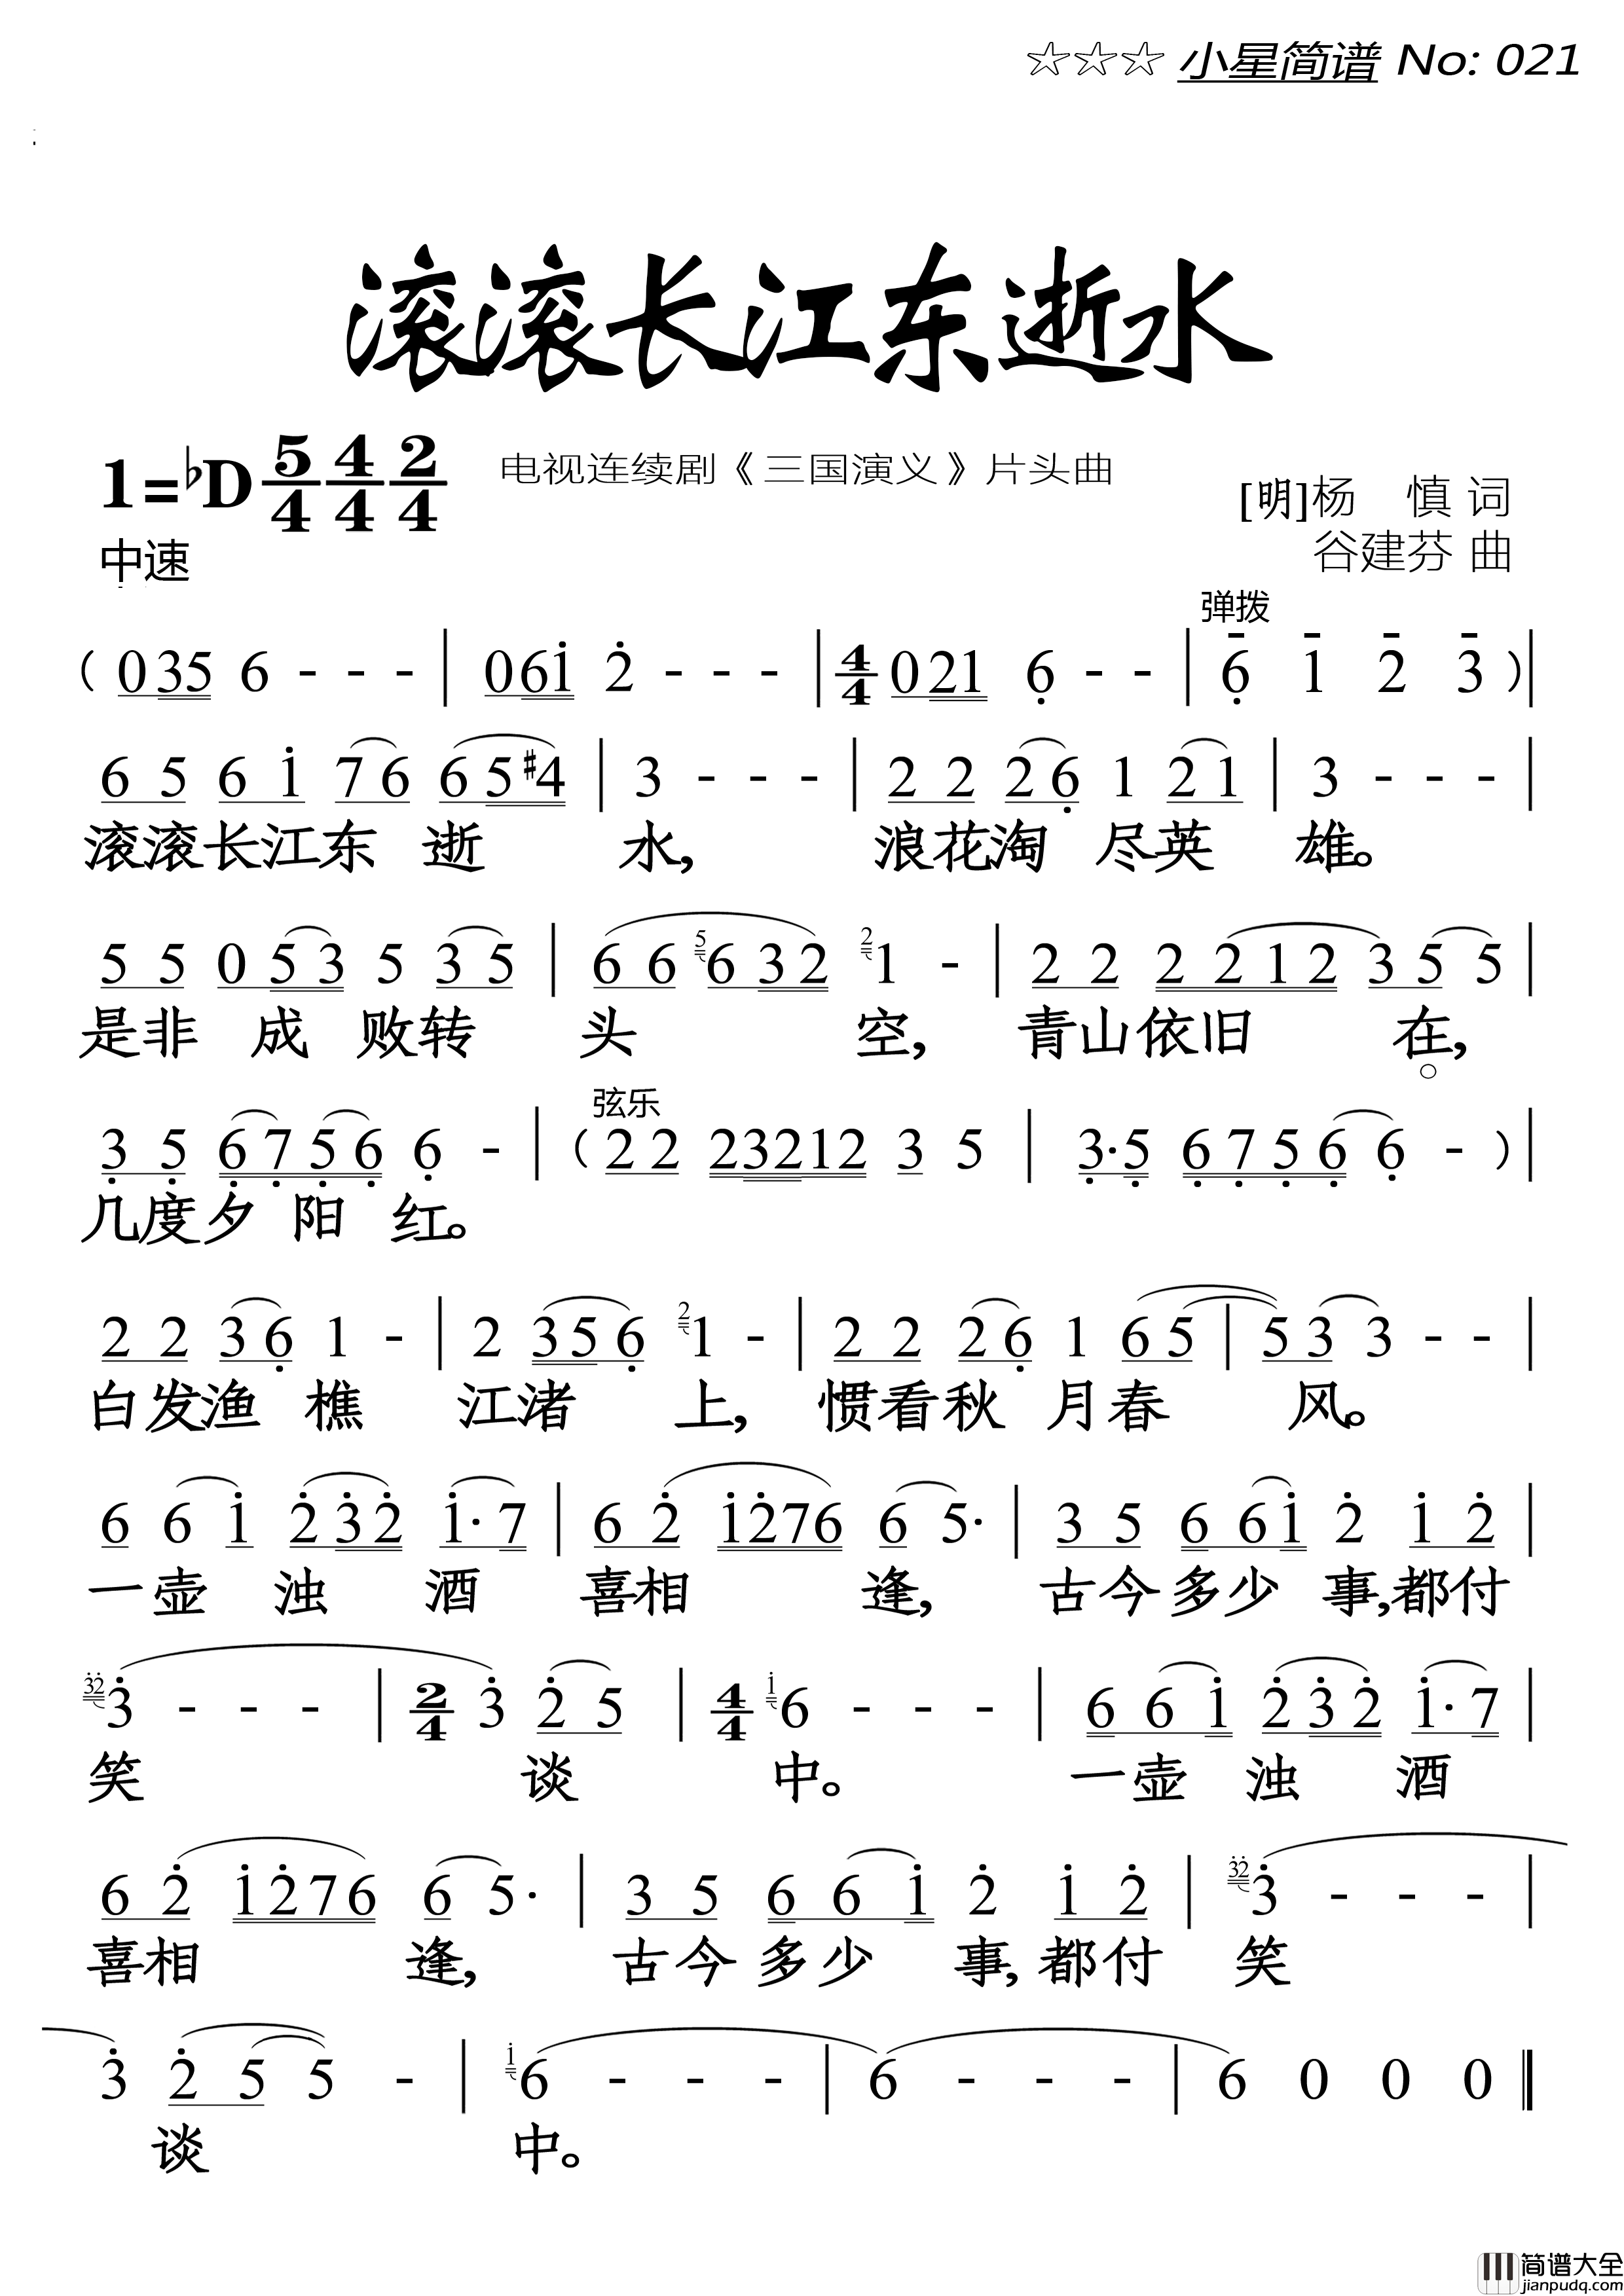 ☆☆☆ 小星简谱 No: 021
滚滚长江东逝水
1=♭D 5/4 4/4 2/4
电视连续剧《三国演义》片头曲
[明]杨 慎 词
谷建芬 曲
中速
弹拨
( 0 3 5 6 - - - | 0 6 1̇ 2̇ - - - | 4/4 0 2 1 6̣ - - | 6̣ 1 2 3 ) |
6 5 6 1̇ 7 6 6 5 #4 | 3 - - - | 2 2 2 6̣ 1 2 1 | 3 - - - |
滚滚长江东 逝 水, 浪花淘 尽英 雄。
5 5 0 5 3 5 3 5 | 6 6 5 6 3 2 2 1 - | 2 2 2 2 1 2 3 5 5 |
是非 成 败转 头 空, 青山依旧 在,
弦乐
3̣ 5̣ 6̣ 7̣ 5̣ 6̣ 6̣ - | ( 2 2 2 3 2 1 2 3 5 | 3̣· 5̣ 6̣ 7̣ 5̣ 6̣ 6̣ - ) |
几度夕 阳 红。
2 2 3 6̣ 1 - | 2 3 5 6̣ 2 1 - | 2 2 2 6̣ 1 6 5 | 5 3 3 - - |
白发渔 樵 江渚 上, 惯看秋 月春 风。
6 6 1̇ 2̇ 3̇ 2̇ 1̇· 7 | 6 2̇ 1̇ 2̇ 7 6 6 5· | 3 5 6 6 1̇ 2̇ 1̇ 2̇ |
一壶 浊 酒 喜相 逢, 古今多少 事,都付
3̇ 2̇ 3̇ - - - | 2/4 3̇ 2̇ 5 | 4/4 1̇ 6 - - - | 6 6 1̇ 2̇ 3̇ 2̇ 1̇· 7 |
笑 谈 中。 一壶 浊 酒
6 2̇ 1̇ 2̇ 7 6 6 5· | 3 5 6 6 1̇ 2̇ 1̇ 2̇ | 3̇ 2̇ 3̇ - - - |
喜相 逢, 古今 多少 事, 都付 笑
3̇ 2̇ 5 5 - | 1̇ 6 - - - | 6 - - - | 6 0 0 0 ‖
谈 中。
简谱大全
jianpudq.com